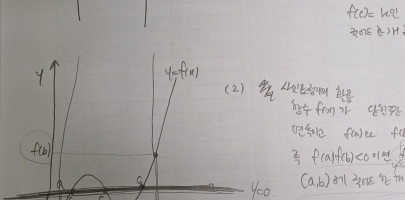 f(c)=k인
적어도 한 개
y
y=f(x)
f(b)
a
c
y=0
(2) 사잇값정리의 활용
함수 f(x)가 닫힌구간
연속이고 f(a)와 f(b
즉 f(a)f(b)<0이면
(a,b)에 적어도 한 개